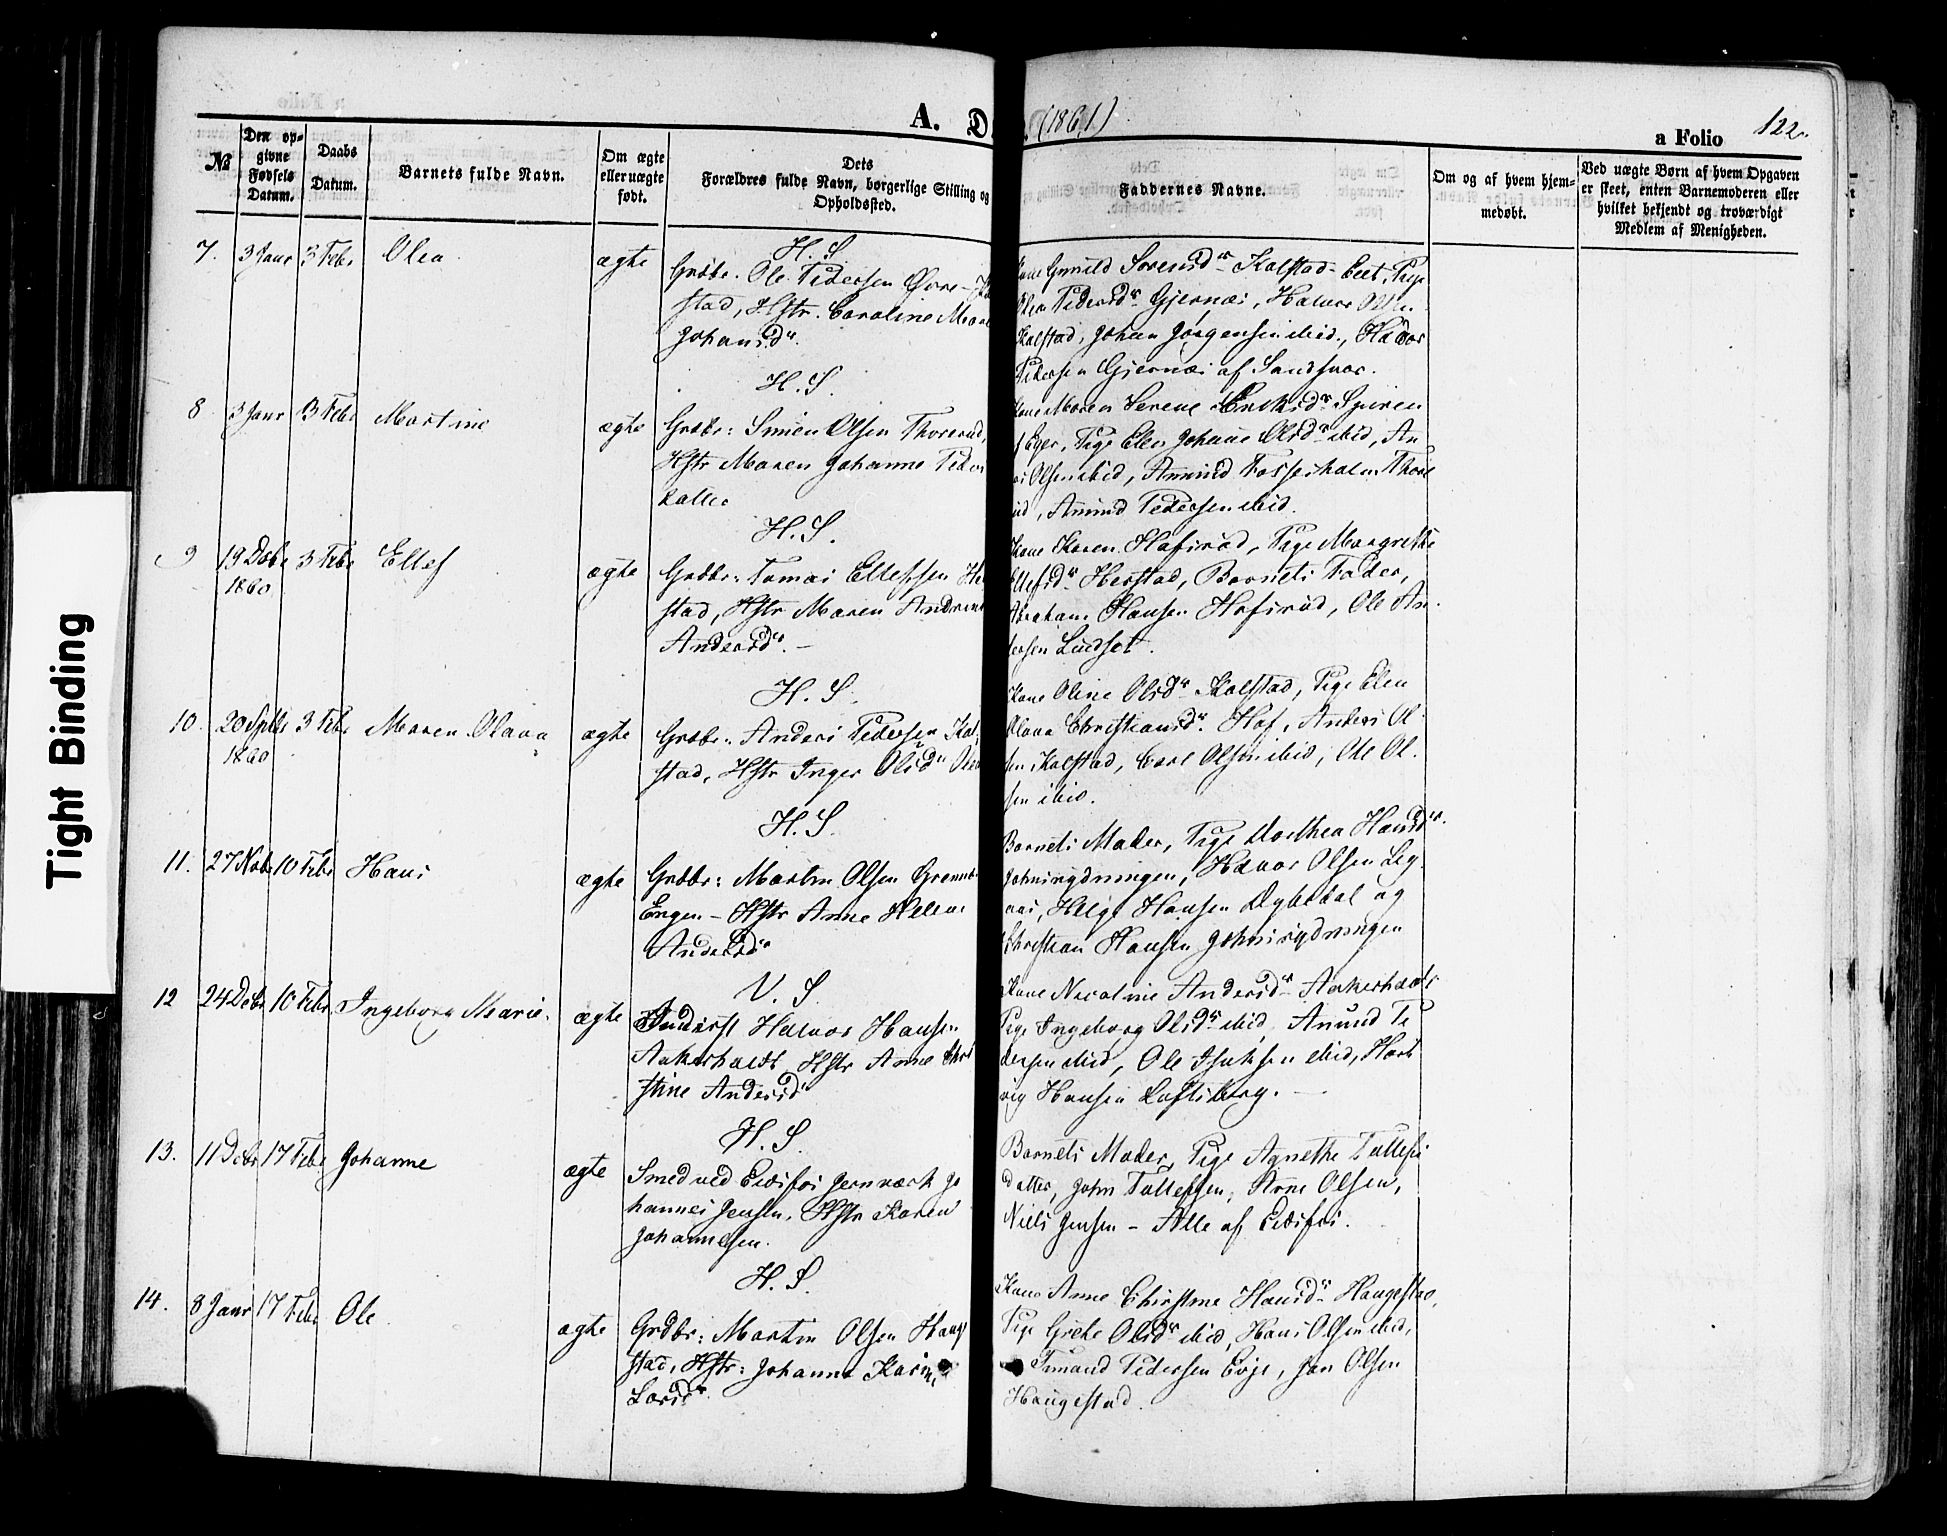 Tight Binding
A. D (1861)
a Folio 122.
№
Den op-
givne
Fødsels
Datum.
Daabs
Datum.
Barnets fulde Navn.
Om ægte
eller uægte
født.
Dets
Forældres fulde Navn, borgerlige Stilling og
Opholdssted.
Faddernes Navne.
Om og af hvem hjem-
medøbt.
Ved uægte Børn af hvem Opgaven
er skeet, enten Barnemoderen eller
hvilket bekjendt og troværdigt
Medlem af Menigheden.
7. 3 Janr 3 Febr Olea ægte
H. S.
Grdbr. Ole Pedersen Øvre-
stad, Hstr. Caroline
Johansdr.
Kone Gunild Sørensdr Kalstad-Eiet, Pige
Olea Pedersdr Gjernæs, Halvor Olsen
Kalstad, Johan Jørgensen ibid., Halvor
Pedersen Gjernæs af Sandsvær.
8 3 Janr 3 Febr Martine ægte
H. S.
Grdbr: Simen Olsen Thorerud,
Hstr Maren Johanne Peders
datter
Kone Maren Serene Eriksdr Spiren
f Eger, Pige Elen Johane Olsdr ibid, An
Olsen ibid, Amund Fosserholm
ud, Amund Pedersen ibid.
9 19 Decbr 3 Febr Ellef ægte
1860
H. S.
Grdbr: Tomas Ellefsen He
stad, Hstr Maren Andrine
Andersdr. -
Kone Karen Hofsrud, Pige Margrethe
Ellefsdr Herstad, Barnets Fader,
Abraham Hansen Hofsrud, Ole An-
dersen Lindset.
10. 20 Septbr 3 Febr Maren Olava ægte
1860
H. S.
Grdbr. Anders Pedersen Kal
stad, Hstr Inger Olsdr
Kone Oline Olsdr Kalstad, Pige Elen
Olava Christiansdr. Hof, Anders Ol-
sen Kalstad, Carl Olsen ibid, Ole Ol-
sen ibid.
11. 27 Novbr 10 Febr Hans ægte
H. S.
Grdbr: Martin Olsen
Engen - Hstr Anne Helene
Andersdr
Barnets Moder, Pige Dorthea Hansdr.
Johnsrydningen, Halvor Olsen Lig-
aas, Helge Hansen Dybedal og
Christian Hansen Johnsrydningen
12 24 Decbr 10 Febr Ingeborg Marie. ægte
V. S.
Inderst Halvor Hansen
Aakerholdt, Hstr Anne Chri
stine Andersdr
Kone Nicoline Andersdr Aakerholdt
Pige Ingeborg Olsdr ibid, Amund Pe
dersen ibid, Ole Isaksen ibid, Hart
vig Hansen Loftsberg. -
13. 11 Decbr 17 Febr Johanne ægte
H. S.
Smed ved Eidsfos Jernværk Jo
hannes Jensen, Hstr Karen
Johannesen.
Barnets Moder, Pige Agnethe Tollefs
datter, John Tollefsen, Arne Olsen,
Niels Jensen - Alle af Eidsfos.
14. 8 Janr 17 Febr Ole ægte
H. S.
Grdbr: Martin Olsen Haug
stad, Hstr: Johanne Karine
Larsdr.
Kone Anne Christine Hansdr Haugestad,
Pige Grethe Olsdr ibid, Hans Olsen ibid,
Amund Pedersen Evje, Jan Olsen
Haugestad.